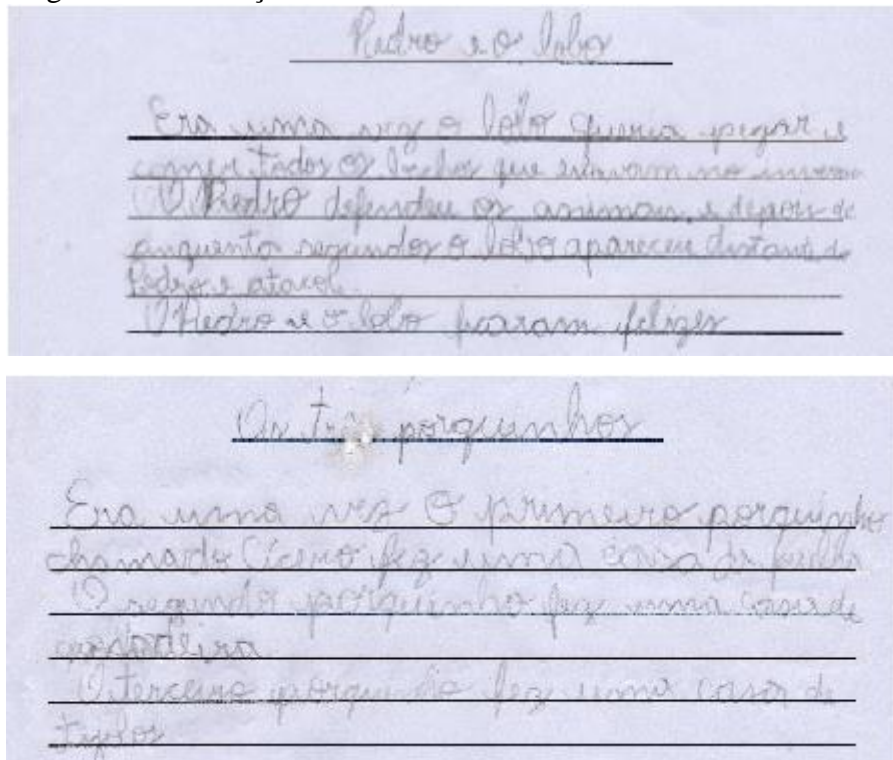 Pedro e o lobo
Era uma vez o lobo queria pegar e
comer todos os bichos que estavam no
O Pedro defendeu os animais e depois de
cinquenta segundos o lobo apareceu distante do
Pedro e
O Pedro e o lobo ficaram felizes
Os três porquinhos
Era uma vez o primeiro porquinho
chamado Cícero fez uma casa de palha
O segundo porquinho fez uma casa de
madeira.
O terceiro porquinho fez uma casa de
tijolos